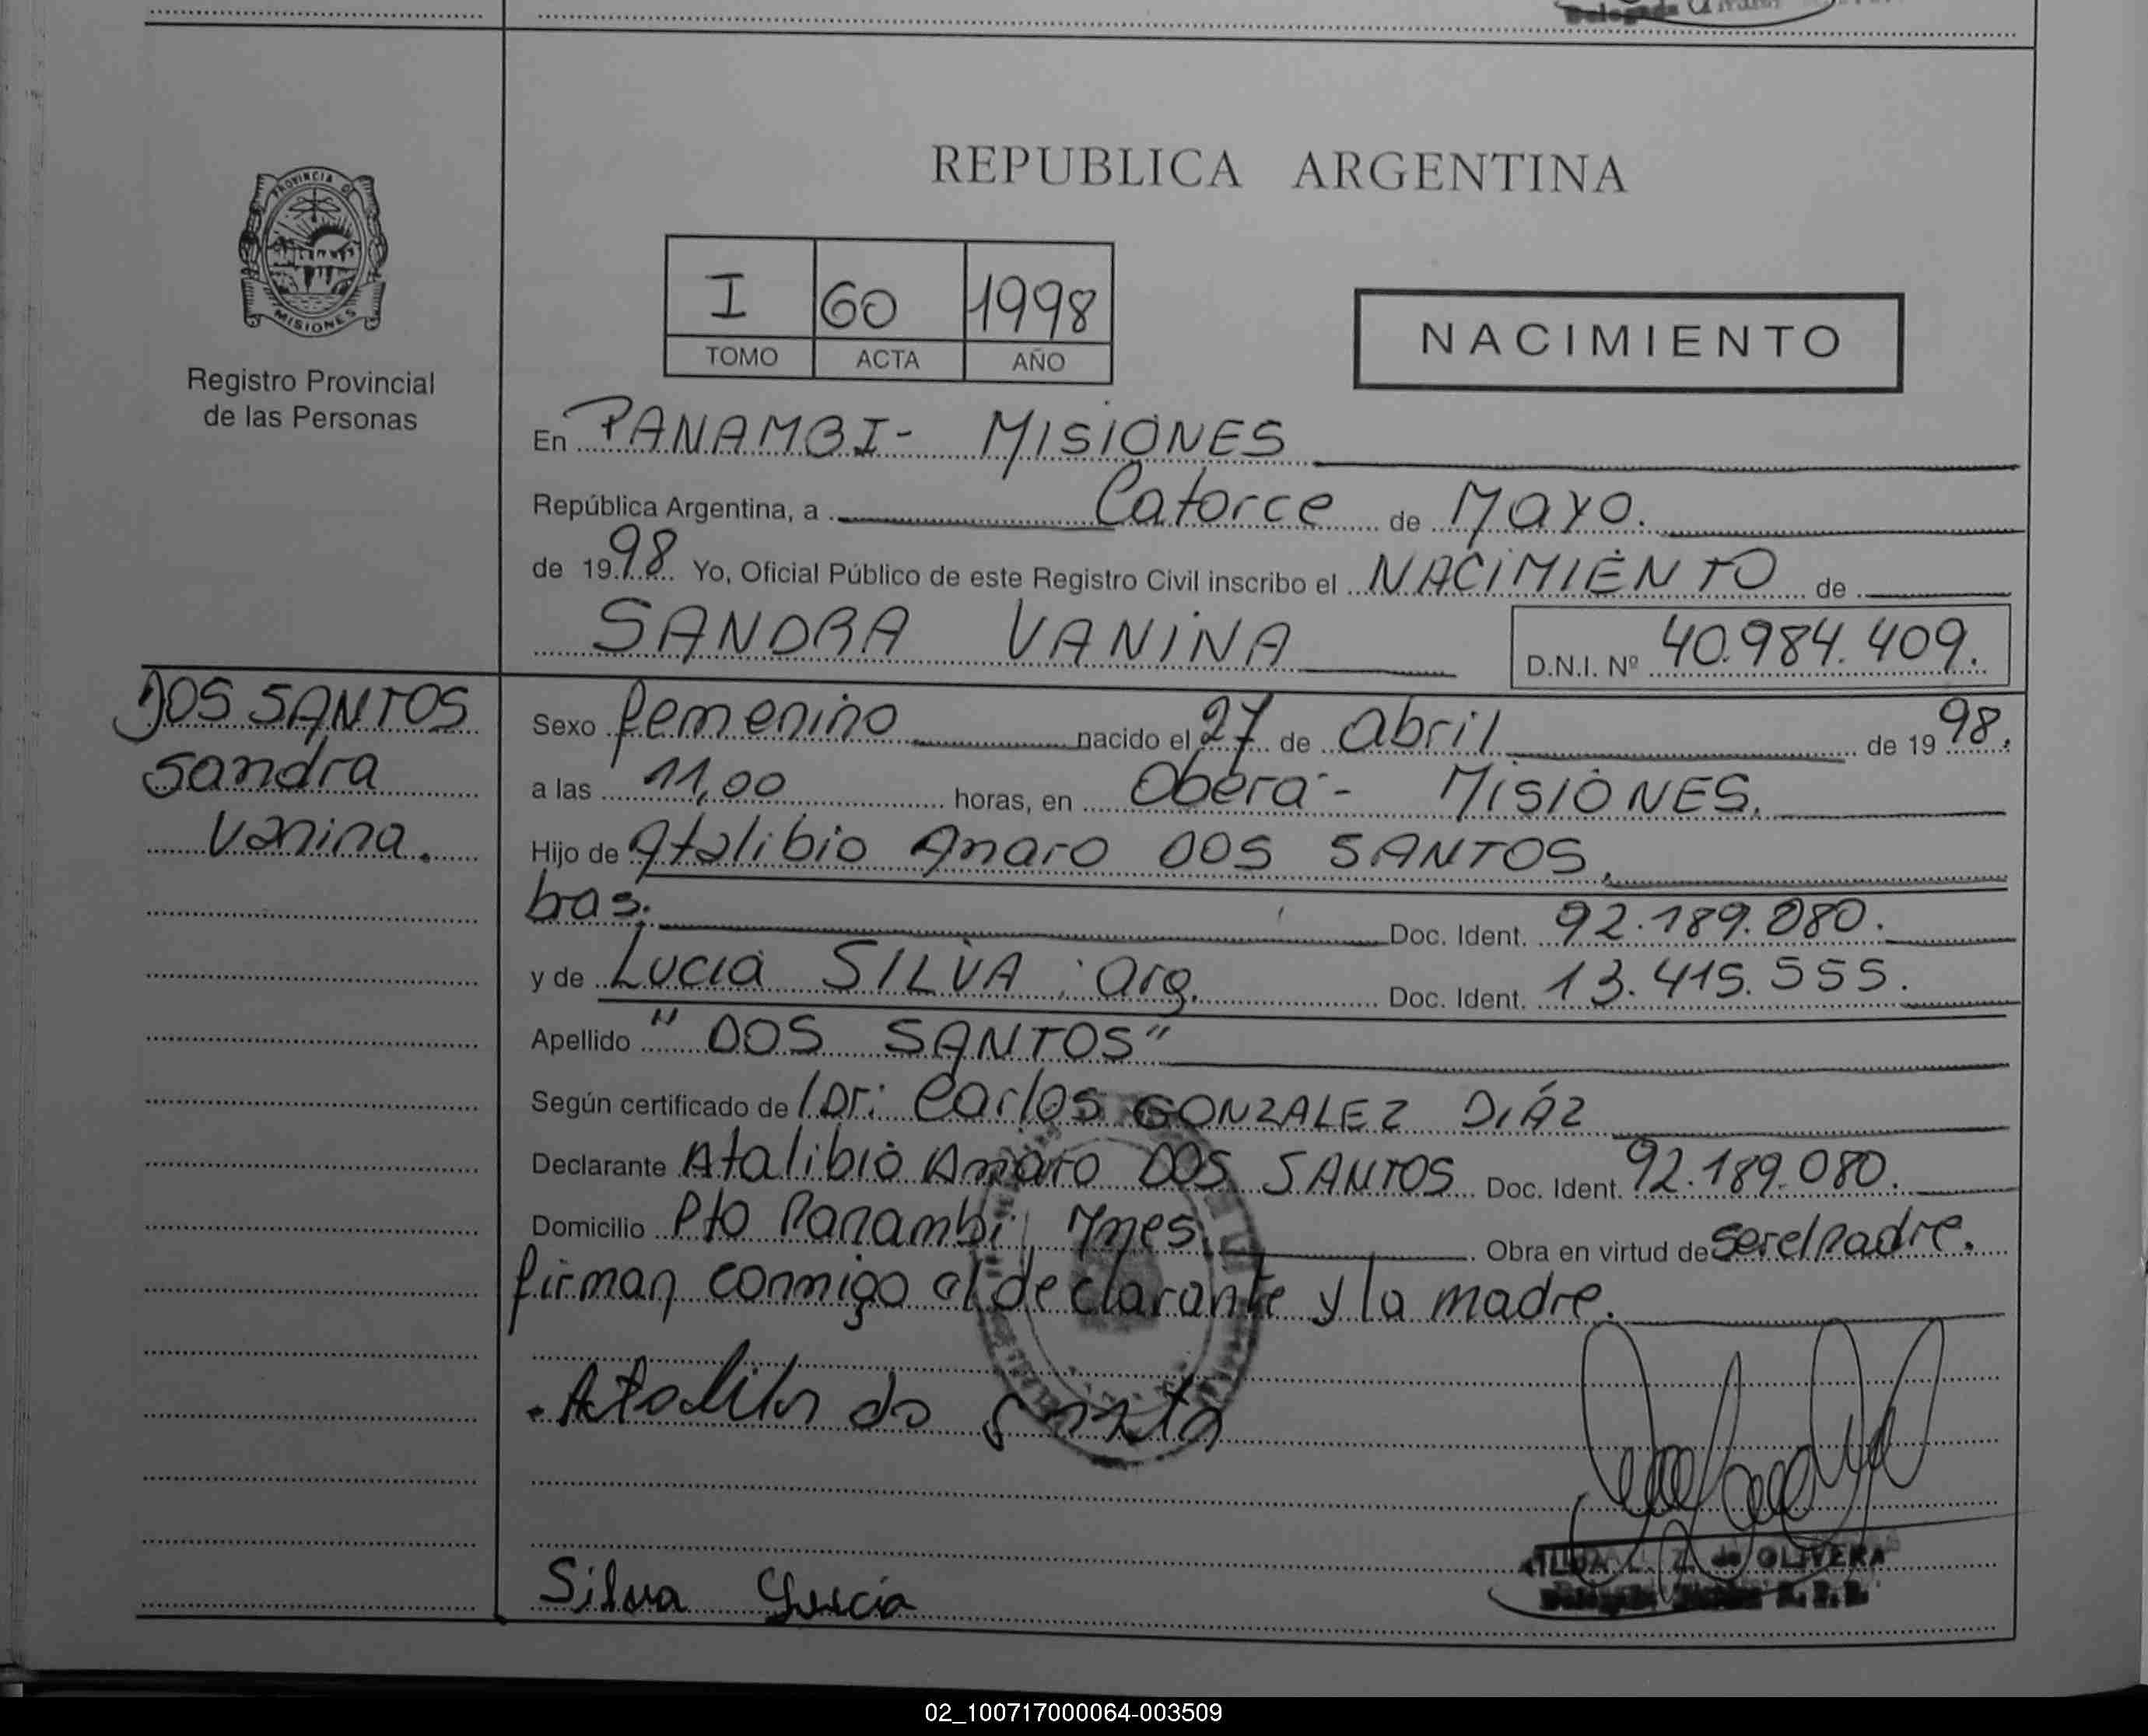 REPUBLICA ARGENTINA
PROVINCIA D
MISIONES
Registro Provincial
de las Personas
I 60 1998
TOMO ACTA AÑO
NACIMIENTO
En PANAMBI- MISIONES
República Argentina, a Catorce de Mayo.
de 1998 Yo, Oficial Público de este Registro Civil inscribo el NACIMIENTO de
SANDRA VANINA D.N.I. Nº 40.984.409.
DOS SANTOS
Sandra
Vanina.
Sexo femenino nacido el 27 de abril de 1998.
a las 11,00 horas, en Oberá- MISIONES.
Hijo de Atalibio Amaro DOS SANTOS,
bras. Doc. Ident. 92.189.080.
y de Lucia SILVA arg. Doc. Ident. 13.415.555.
Apellido "DOS SANTOS"
Según certificado de Dr: Carlos GONZALEZ DIÁZ
Declarante Atalibio Amaro DOS SANTOS Doc. Ident. 92.189.080.
Domicilio Pto Panambi, Mnes. Obra en virtud de ser el padre.
firman conmigo el declarante y la madre.
Silva Lucia
de OLIVERA
02_100717000064-003509